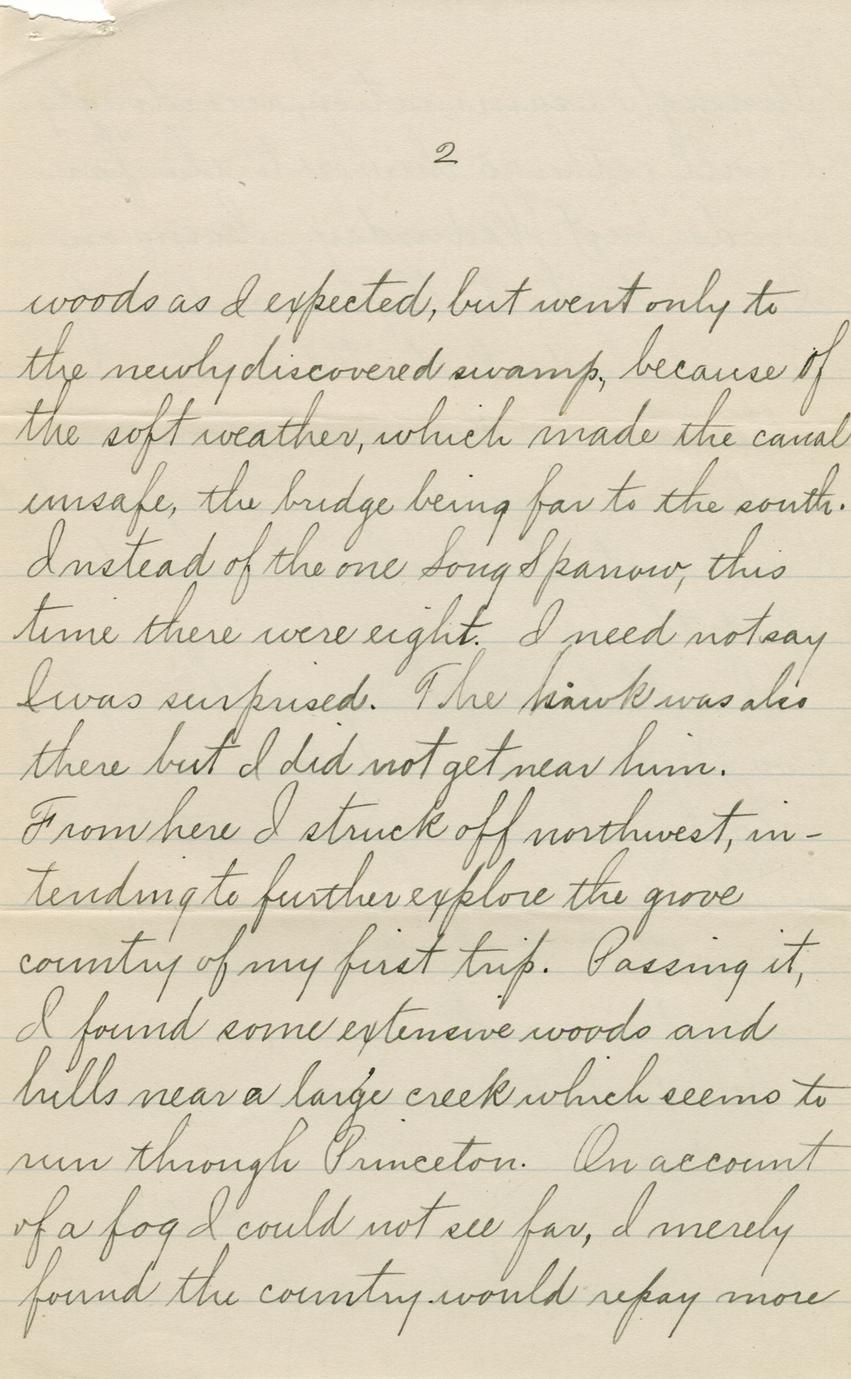 2
woods as I expected, but went only to
the newly discovered swamp, because of
the soft weather, which made the canal
unsafe, the bridge being far to the south.
Instead of the one Song Sparrow, this
time there were eight. I need not say
I was surprised. The hawk was also
there but I did not get near him.
From here I struck off northwest, in-
tending to further explore the grove
country of my first trip. Passing it,
I found some extensive woods and
hills near a large creek which seems to
run through Princeton. On account
of a fog I could not see far, I merely
found the country would repay more